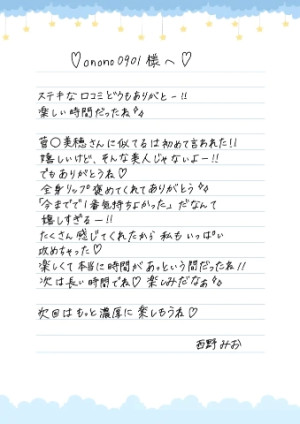 ♡onono0901様へ♡
ステキな口コミどうもありがと〜!!
楽しい時間だったね♪♪
菅〇美穂さんに似てるは初めて言われた!!
嬉しいけど、そんな美人じゃないよー!!
でもありがとうね♡
全身リップ褒めてくれてありがとう♪♪
「今までで1番気持ちよかった」だなんて
嬉しすぎるー!!
たくさん感じてくれたから私もいっぱい
攻めちゃった♡
楽しくて本当に時間があっという間だったね!!
次は長い時間でね♡楽しみだなぁ♪♪
次回はもっと濃厚に楽しもうね♡
西野みお